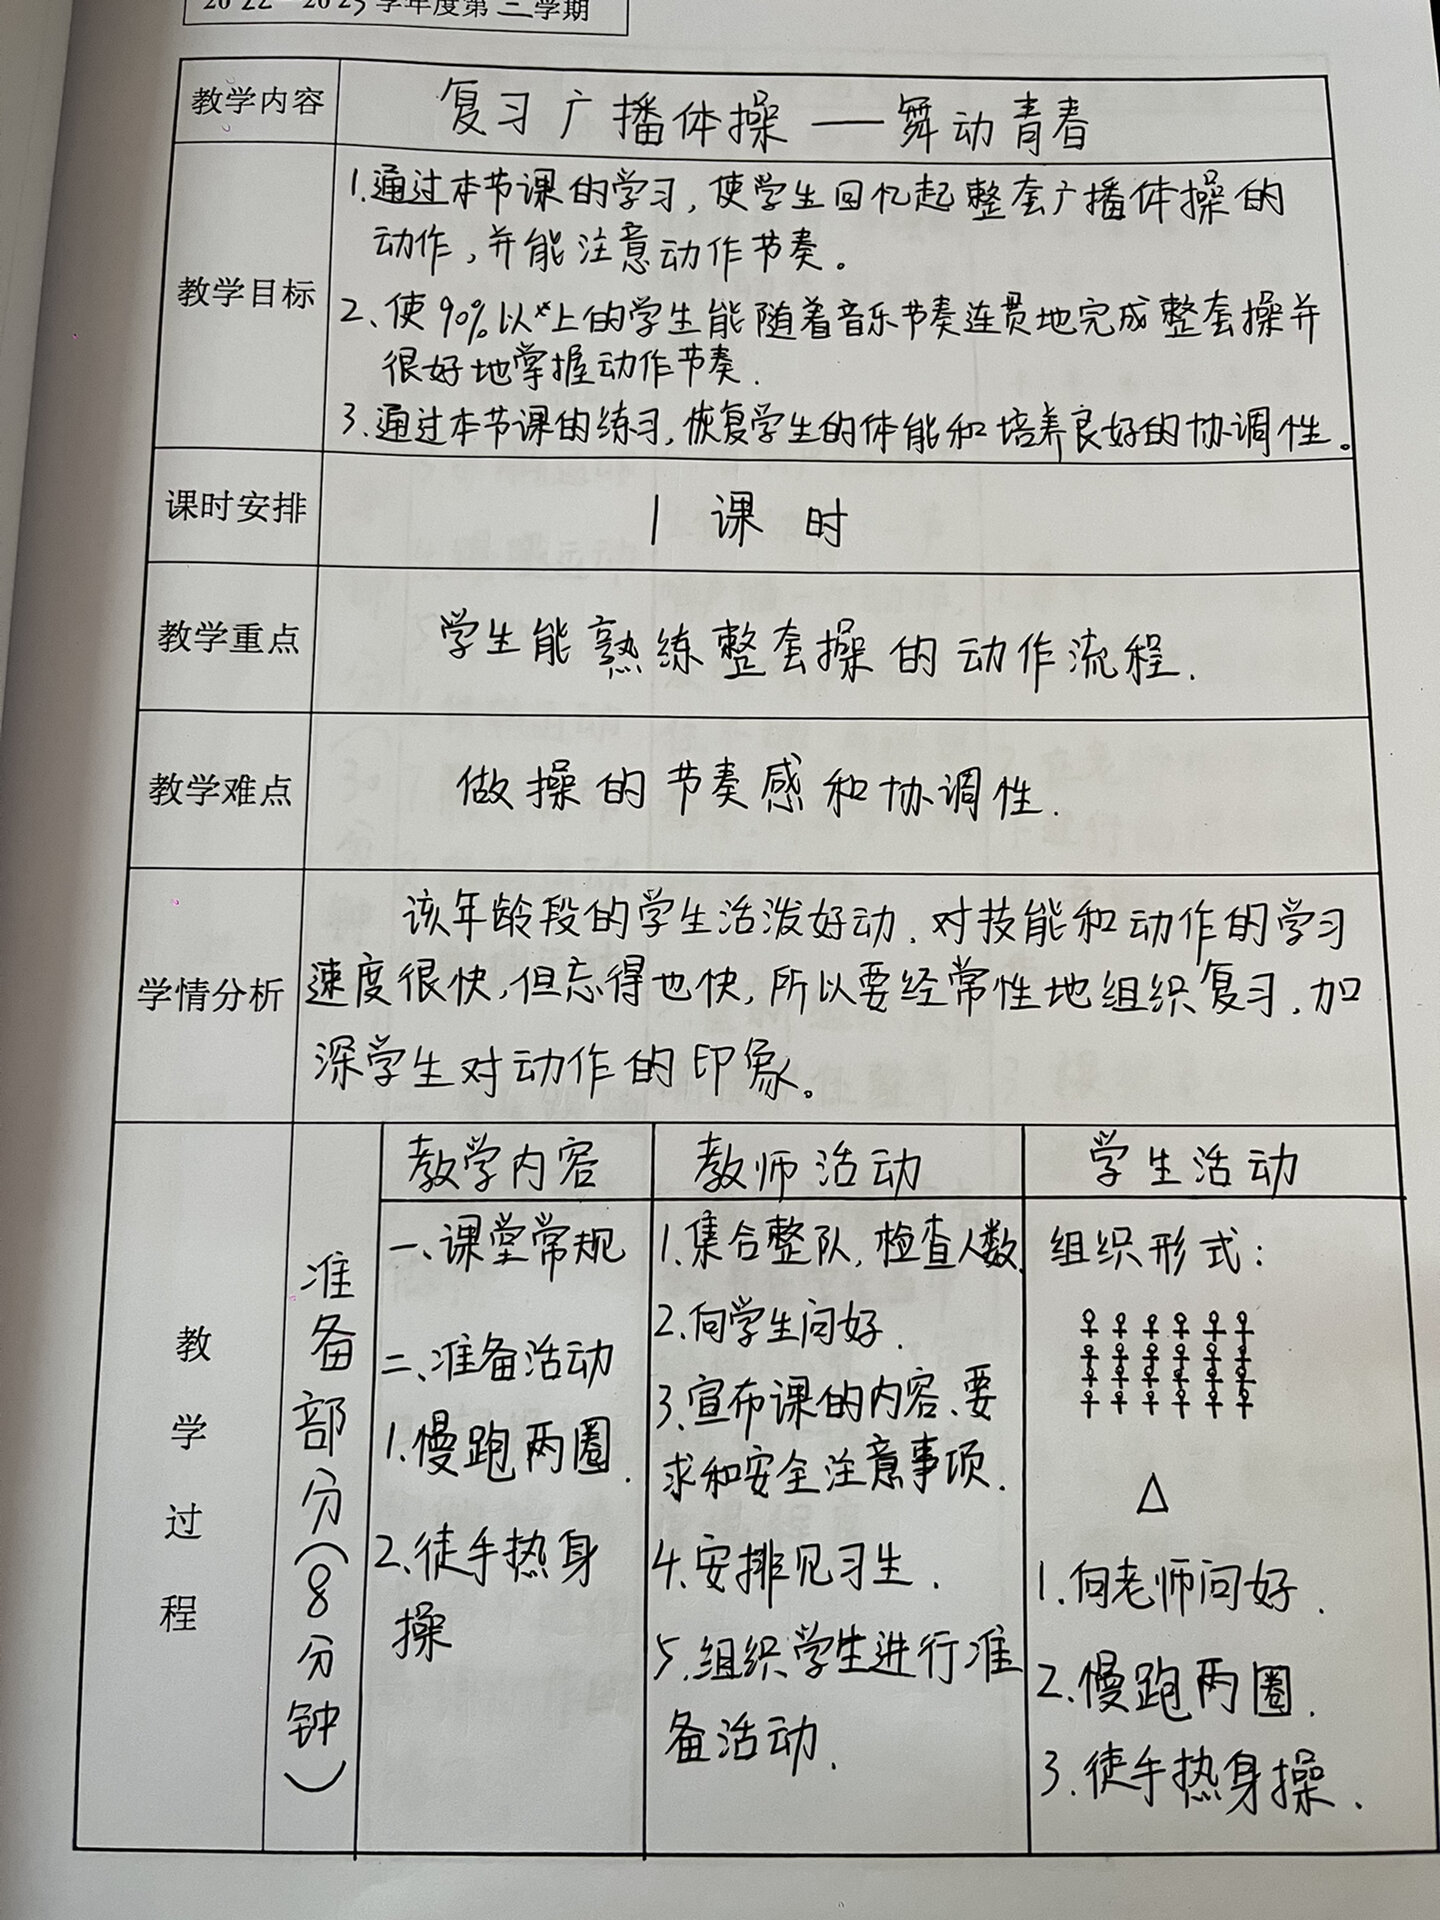 2022-2023学年度第二学期
教学内容
复习广播体操——舞动青春
教学目标
1.通过本节课的学习,使学生回忆起整套广播体操的
动作,并能注意动作节奏。
2、使90%以上的学生能随着音乐节奏连贯地完成整套操并
很好地掌握动作节奏.
3.通过本节课的练习,恢复学生的体能和培养良好的协调性。
课时安排
1课时
教学重点
学生能熟练整套操的动作流程.
教学难点
做操的节奏感和协调性.
学情分析
该年龄段的学生活泼好动,对技能和动作的学习
速度很快,但忘得也快,所以要经常性地组织复习,加
深学生对动作的印象。
教学过程
准备部分(8分钟)
教学内容
一、课堂常规
二、准备活动
1.慢跑两圈.
2.徒手热身
操
教师活动
1.集合整队,检查人数.
2.向学生问好.
3.宣布课的内容、要
求和安全注意事项.
4.安排见习生.
5.组织学生进行准
备活动.
学生活动
组织形式:
1.向老师问好.
2.慢跑两圈.
3.徒手热身操.